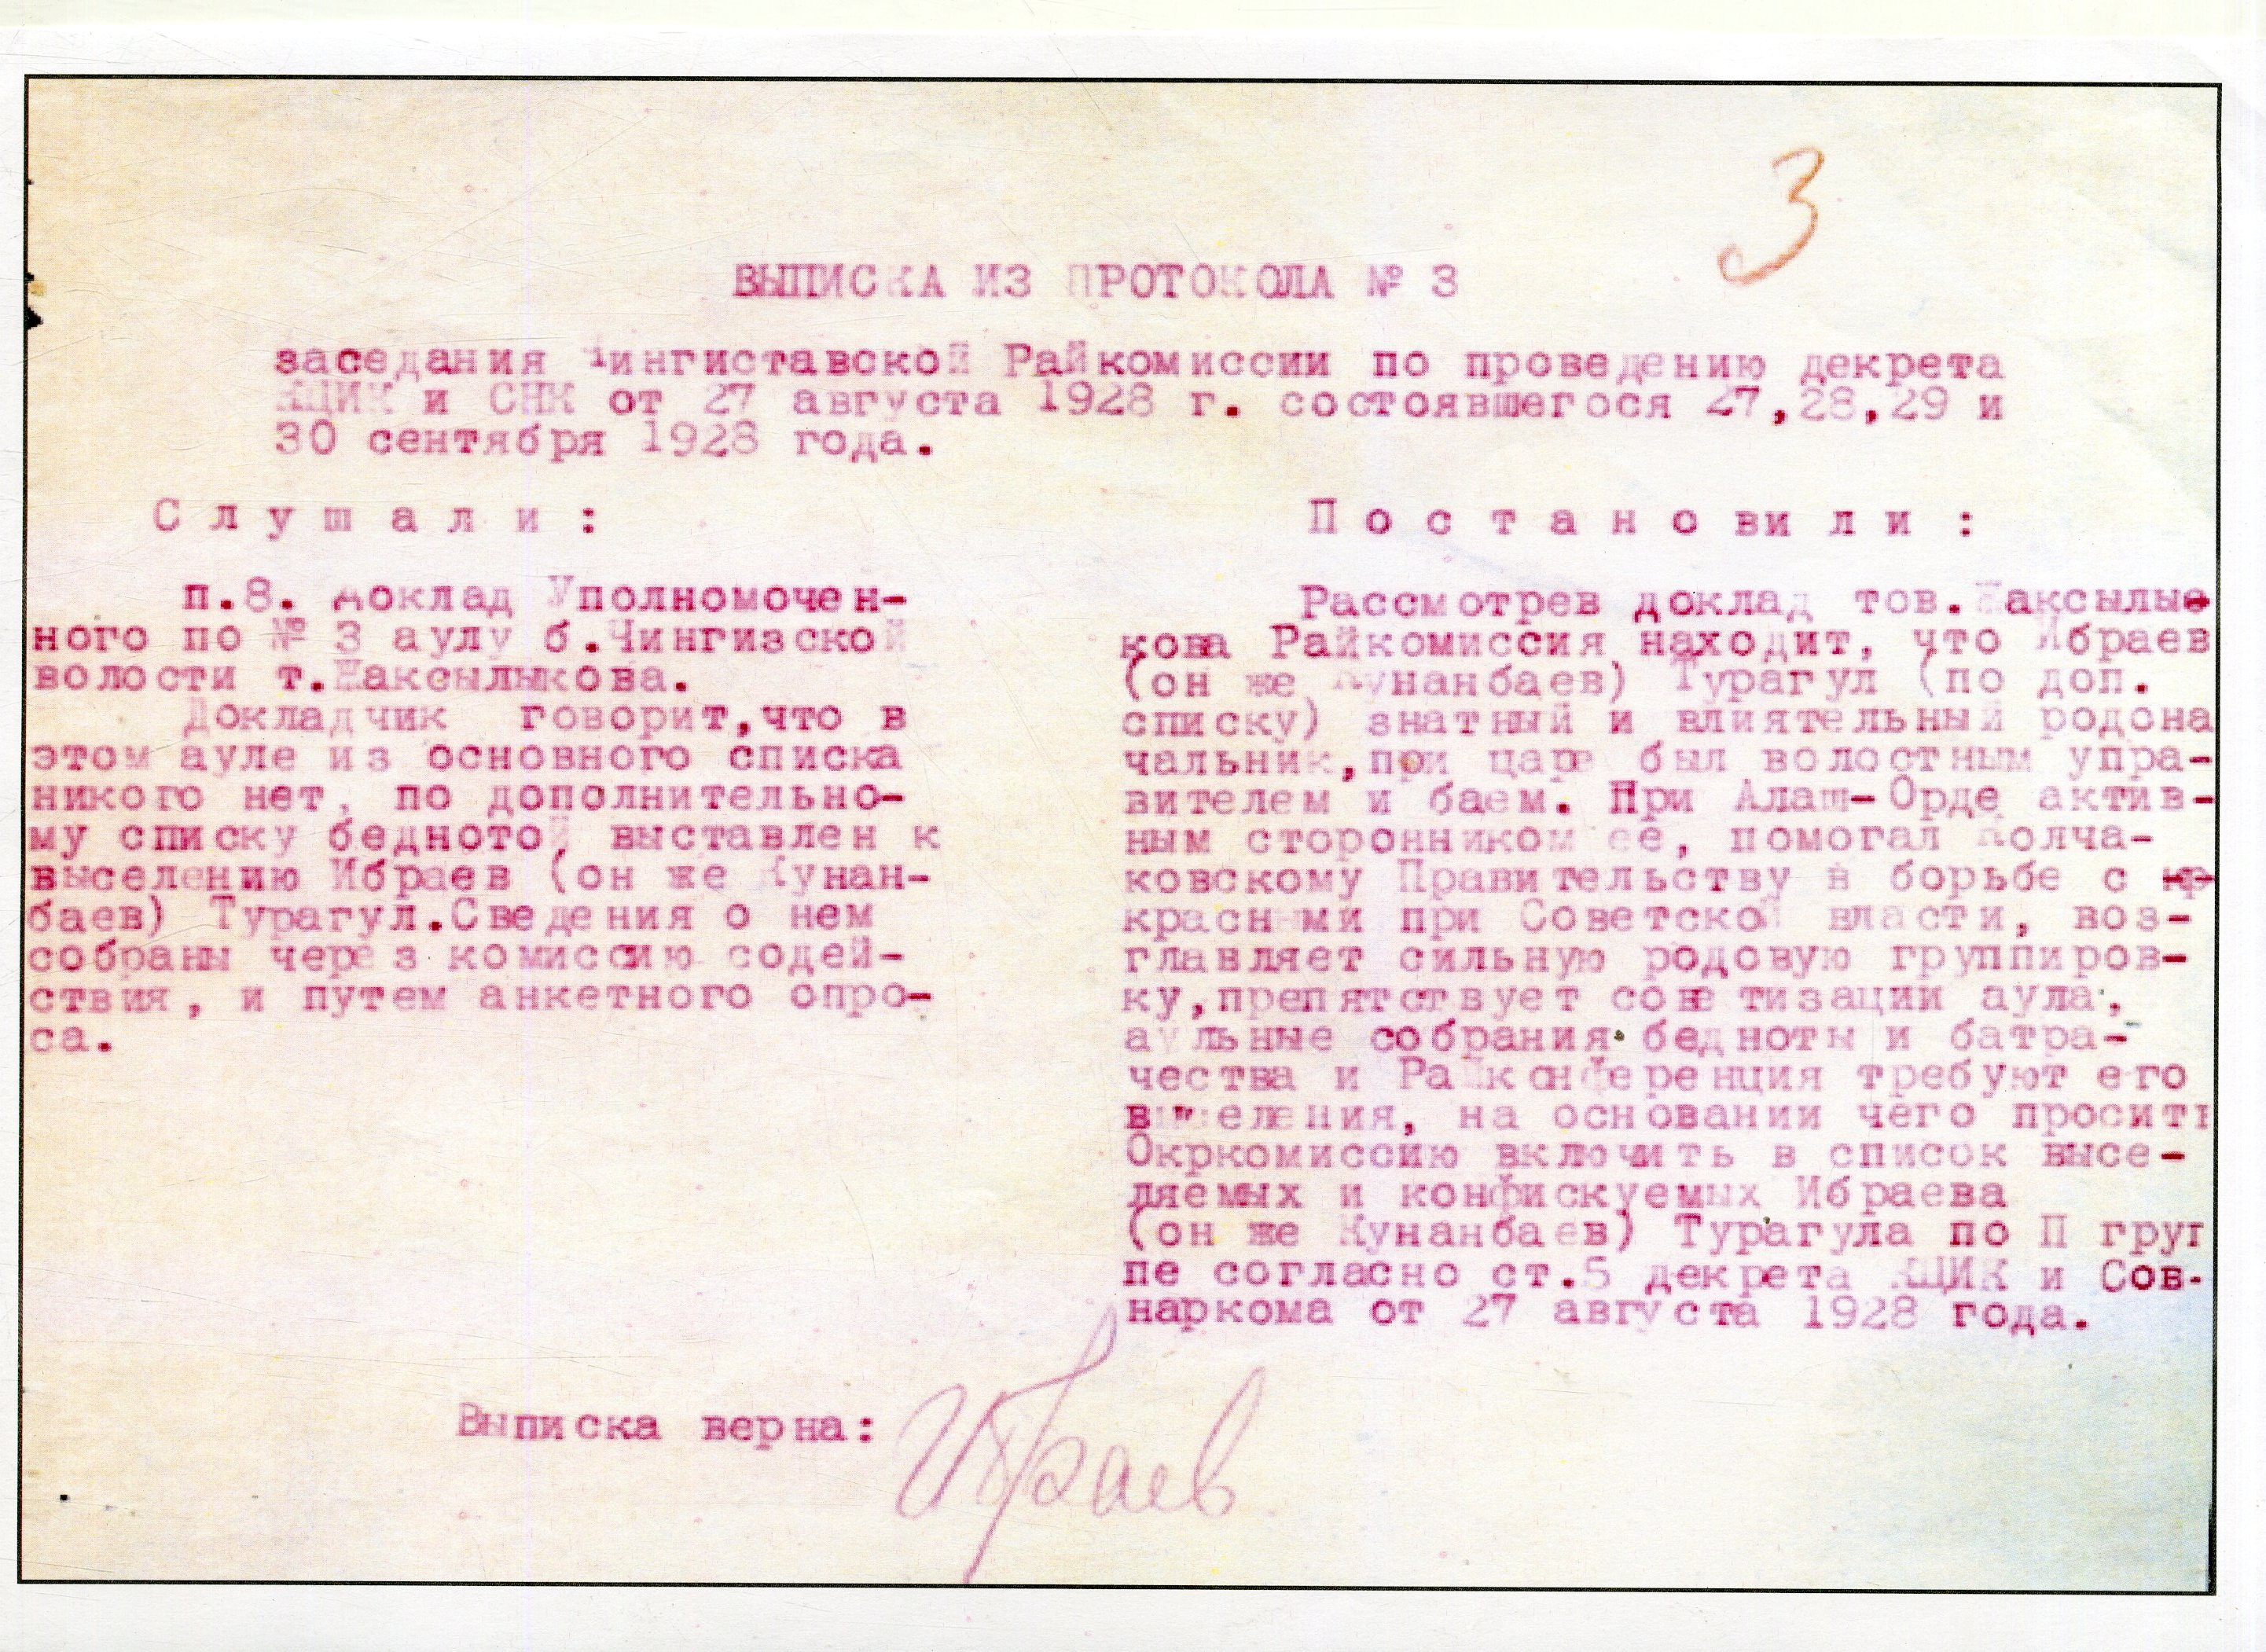 3
ВЫПИСКА ИЗ ПРОТОКОЛА № 3
заседания Чингиставской Райкомиссии по проведению декрета
КЦИК и СНК от 27 августа 1928 г. состоявшегося 27,28,29 и
30 сентября 1928 года.
Слушали:
п.8. Доклад Уполномочен-
ного по № 3 аулу б.Чингизской
волости т.Жаксылыкова.
Докладчик говорит,что в
этом ауле из основного списка
никого нет, по дополнительно-
му списку беднотой выставлен к
выселению Ибраев (он же Кунан-
баев) Турагул.Сведения о нем
собраны через комиссию содей-
ствия, и путем анкетного опро-
са.
Постановили:
Рассмотрев доклад тов.Жаксылы-
кова Райкомиссия находит, что Ибраев
(он же Кунанбаев) Турагул (по доп.
списку) знатный и влиятельный родона
чальник,при царе был волостным упра-
вителем и баем. При Алаш-Орде актив-
ным сторонником ее, помогал Колча-
ковскому Правительству в борьбе с
красными при Советской власти, воз-
главляет сильную родовую группиров-
ку,препятствует советизации аула,
аульные собрания бедноты и батра-
чества и Райконференция требуют его
выселения, на основании чего просить
Окркомиссию включить в список высе-
ляемых и конфискуемых Ибраева
(он же Кунанбаев) Турагула по II груп
пе согласно ст.5 декрета КЦИК и Сов-
наркома от 27 августа 1928 года.
Выписка верна: Ибраев